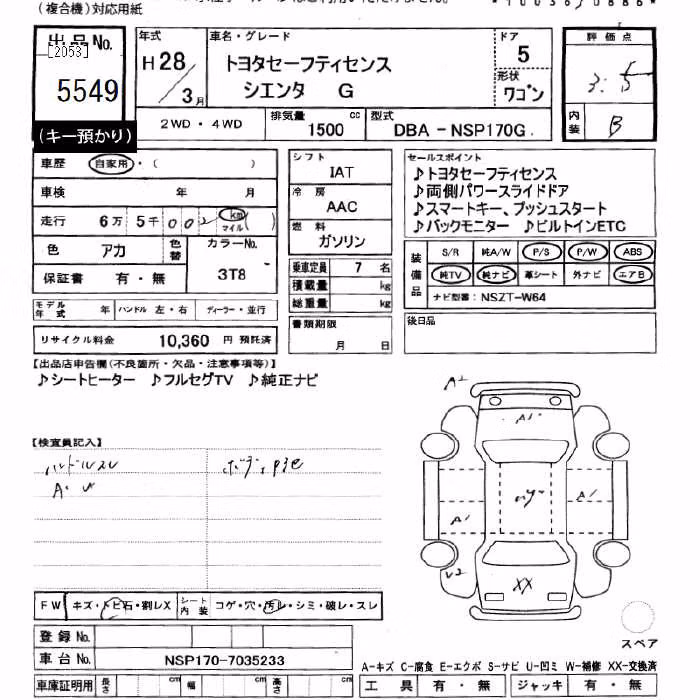 (複合機)対応用紙
出品No.
[2053]
5549
(キー預かり)
年式
H28/3月
車名・グレード
トヨタセーフティセンス
シエンタ G
ドア
5
形状
ワゴン
評価点
3.5
内装
B
2WD・4WD
排気量
1500 cc
型式
DBA-NSP170G
車歴 自家用・( )
車検 年 月
走行 6万 5千 002 km マイル ( )
色 アカ
色替
カラーNo.
3T8
保証書 有・無
モデル年式 年 ハンドル 左・右 ディーラー・並行
リサイクル料金 10,360 円 預託済
シフト
IAT
冷房
AAC
燃料
ガソリン
乗車定員 7 名
積載量 kg
総重量 kg
書類期限
月 日
セールスポイント
♪トヨタセーフティセンス
♪両側パワースライドドア
♪スマートキー、プッシュスタート
♪バックモニター ♪ビルトインETC
装備品
S/R 純A/W P/S P/W ABS
純TV 純ナビ 革シート 外ナビ エアB
ナビ型番: NSZT-W64
後日品
【出品店申告欄(不良箇所・欠品・注意事項等)】
♪シートヒーター ♪フルセグTV ♪純正ナビ
【検査員記入】
ハンドルスレ
A2
A1
A1
A1
XX
FW キズ・トビ石・割レX
シート内装 コゲ・穴・汚レ・シミ・破レ・スレ
登録No.
車台No. NSP170-7035233
車庫証明用 長さ cm 幅 cm 高さ cm
スペア
A-キズ C-腐食 E-エクボ S-サビ U-凹ミ W-補修 XX-交換済
工具 有・無 ジャッキ 有・無